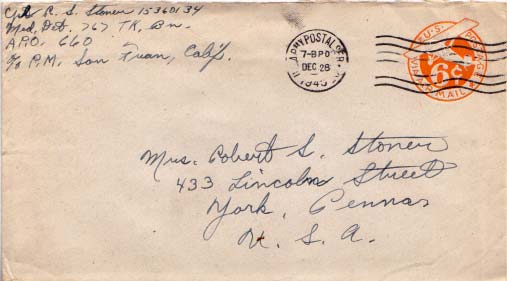 Cpl R. S. Stoner 15360134
Med. Det. 767 TK. Bn.
A.P.O. 660
c/o P.M. San Fran, Calif.
ARMY POSTAL SER.
7-8 PD
DEC 28
U.S. POSTAGE
6¢
VIA AIR MAIL
Mrs. Robert S. Stoner
433 Lincoln Street
York, Penna
U. S. A.